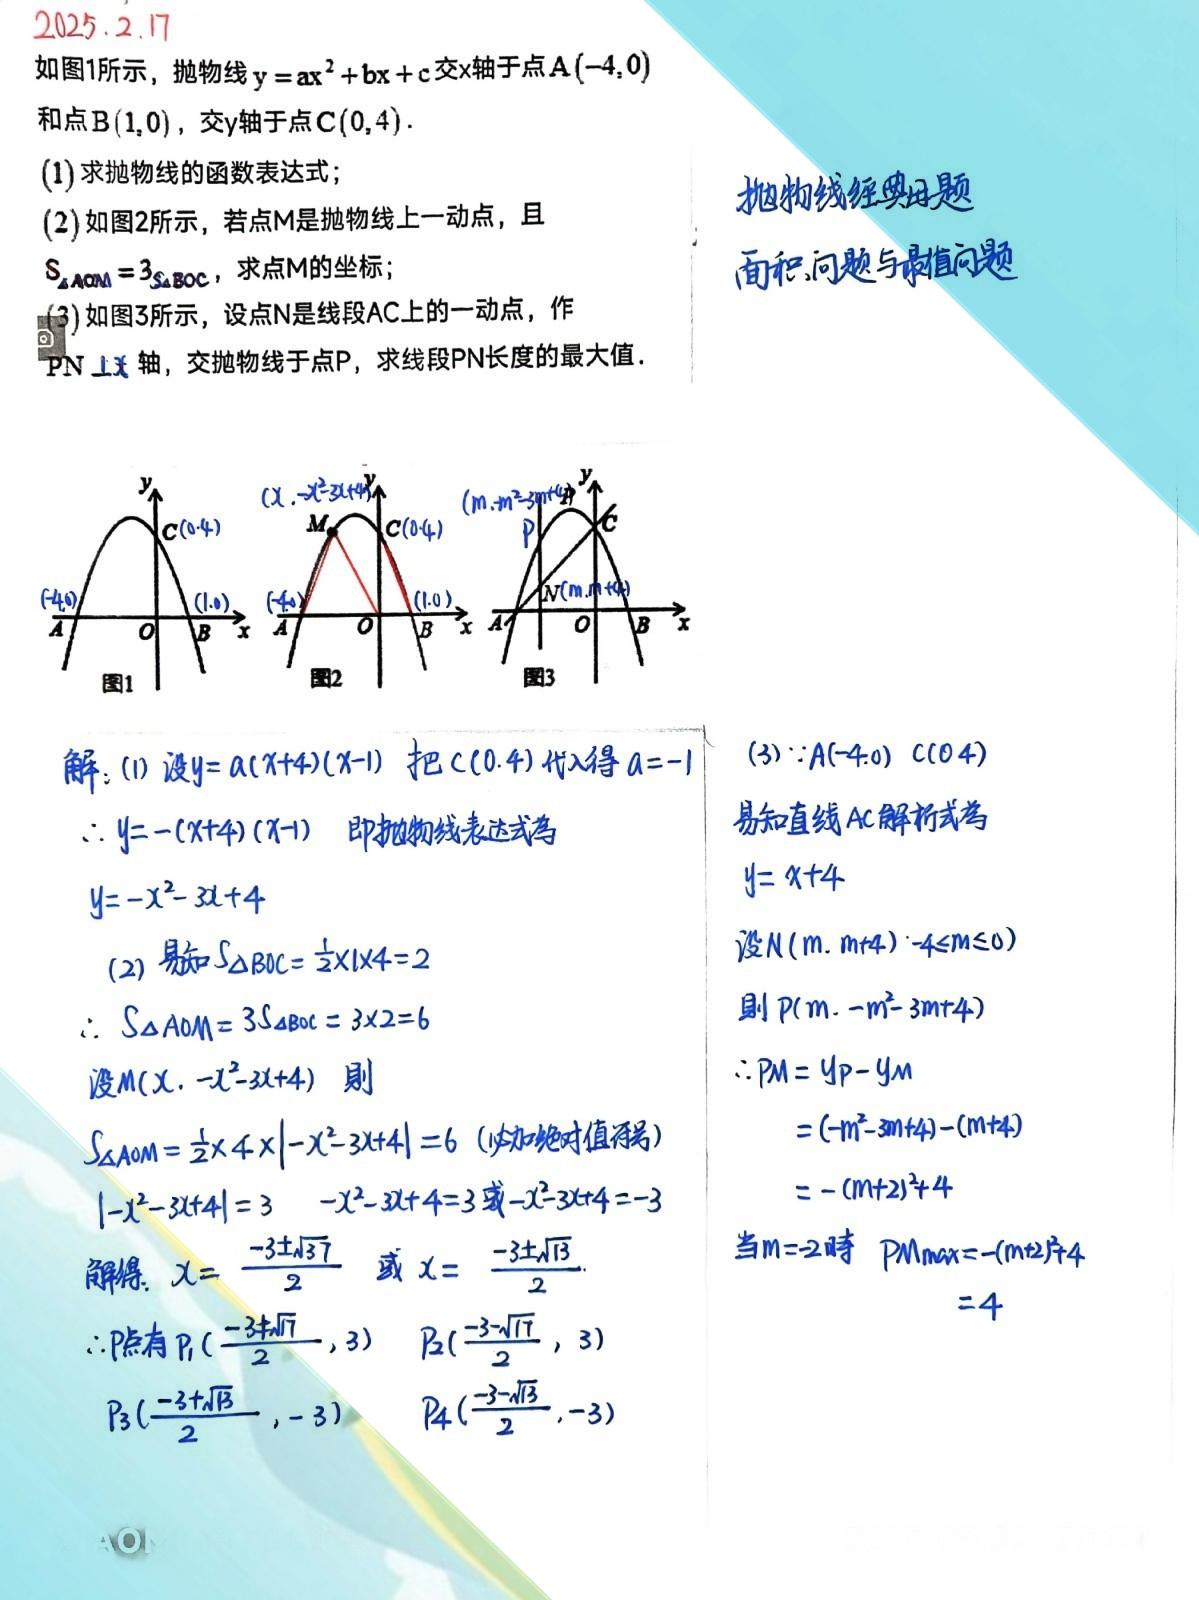 2025.2.17
如图1所示，抛物线y=ax²+bx+c交x轴于点A(-4,0)
和点B(1,0)，交y轴于点C(0,4).
(1)求抛物线的函数表达式；
(2)如图2所示，若点M是抛物线上一动点，且
S△AOM=3S△BOC，求点M的坐标；
(3)如图3所示，设点N是线段AC上的一动点，作
PN⊥x轴，交抛物线于点P，求线段PN长度的最大值.
抛物线经典母题
面积问题与最值问题
y
C(0.4)
(-4.0)
(1.0)
A
O
B
x
图1
(x.-x²-3x+4)
y
M
C(0.4)
(-4.0)
(1.0)
A
O
B
x
图2
(m.-m²-3m+4)
P
y
P
C
N(m.m+4)
A
O
B
x
图3
解：(1) 设y=a(x+4)(x-1) 把C(0.4)代入得a=-1
∴ y=-(x+4)(x-1) 即抛物线表达式为
y=-x²-3x+4
(2) 易知S△BOC=½×1×4=2
∴ S△AOM=3S△BOC=3×2=6
设M(x. -x²-3x+4) 則
S△AOM=½×4×|-x²-3x+4|=6 (必加绝对值符号)
|-x²-3x+4|=3 -x²-3x+4=3或-x²-3x+4=-3
解得. x=(-3±√37)/2 或 x=(-3±√13)/2.
∴P点有P₁((-3+√17)/2, 3) P₂((-3-√17)/2, 3)
P₃((-3+√13)/2, -3) P₄((-3-√13)/2, -3)
(3) ∵A(-4.0) C(0 4)
易知直线AC解析式为
y=x+4
设N(m. m+4) -4≤m≤0)
則P(m. -m²-3m+4)
∴PM=yP-yM
=(-m²-3m+4)-(m+4)
=-(m+2)²+4
当m=-2時 PMmax=-(m+2)²+4
=4